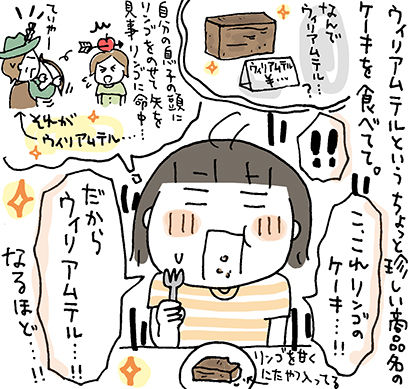 ウィリアムテルという ちょっと珍しい商品名の
ケーキを 食べてて。
なんで
ウィリアムテル…
?
ウィリアムテル
¥…
!!
こ、これリンゴの
ケーキ…!!
自分の息子の頭に
リンゴをのせて 矢を
見事 リンゴに命中…
ていやー
それが
ウィリアムテル…
だから
ウィリアムテル…!!
なるほど…!!
リンゴを甘く
にたやつ入ってる